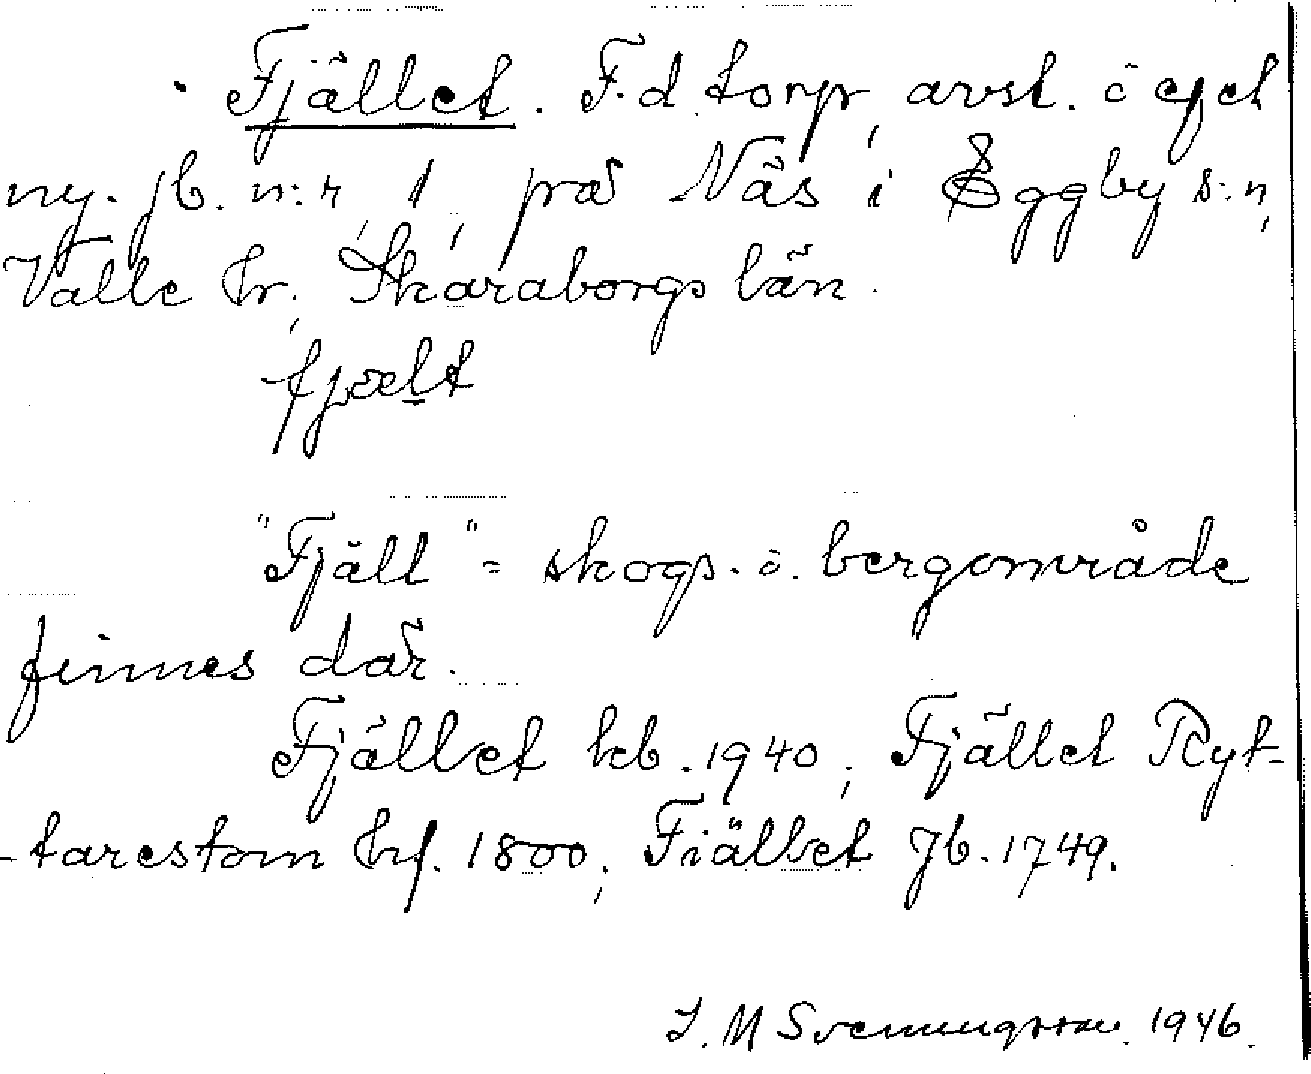 Fjället. F.d. torp, avst. o egt
ny. jb. n:r 1, på Näs i Eggby s:n,
Valle hr, Skaraborgs län.
fjælt
"Fjäll" = skogs- o. bergområde
finnes där.
Fjället kb. 1940; Fjället Ryt-
-tarestom hf. 1800; Fiället Jb. 1749.
J. M Svenungsson. 1946.